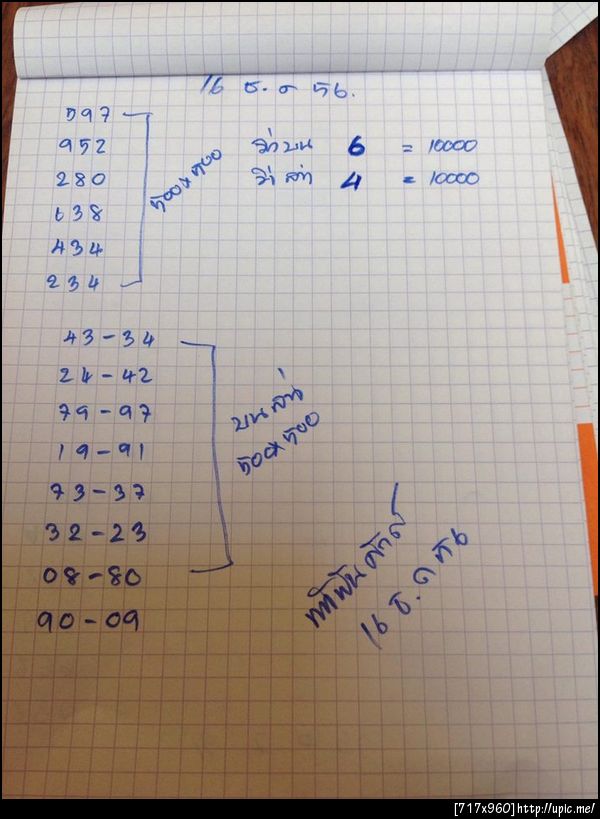 16 ธ.ค 56.
597
952
280
638
434
234
500x500
วิ่งบน 6 = 10000
วิ่งล่าง 4 = 10000
43-34
24-42
79-97
19-91
73-37
32-23
08-80
90-09
บนล่าง
500x500
16 ธ.ค 56
[717x960]http://upic.me/